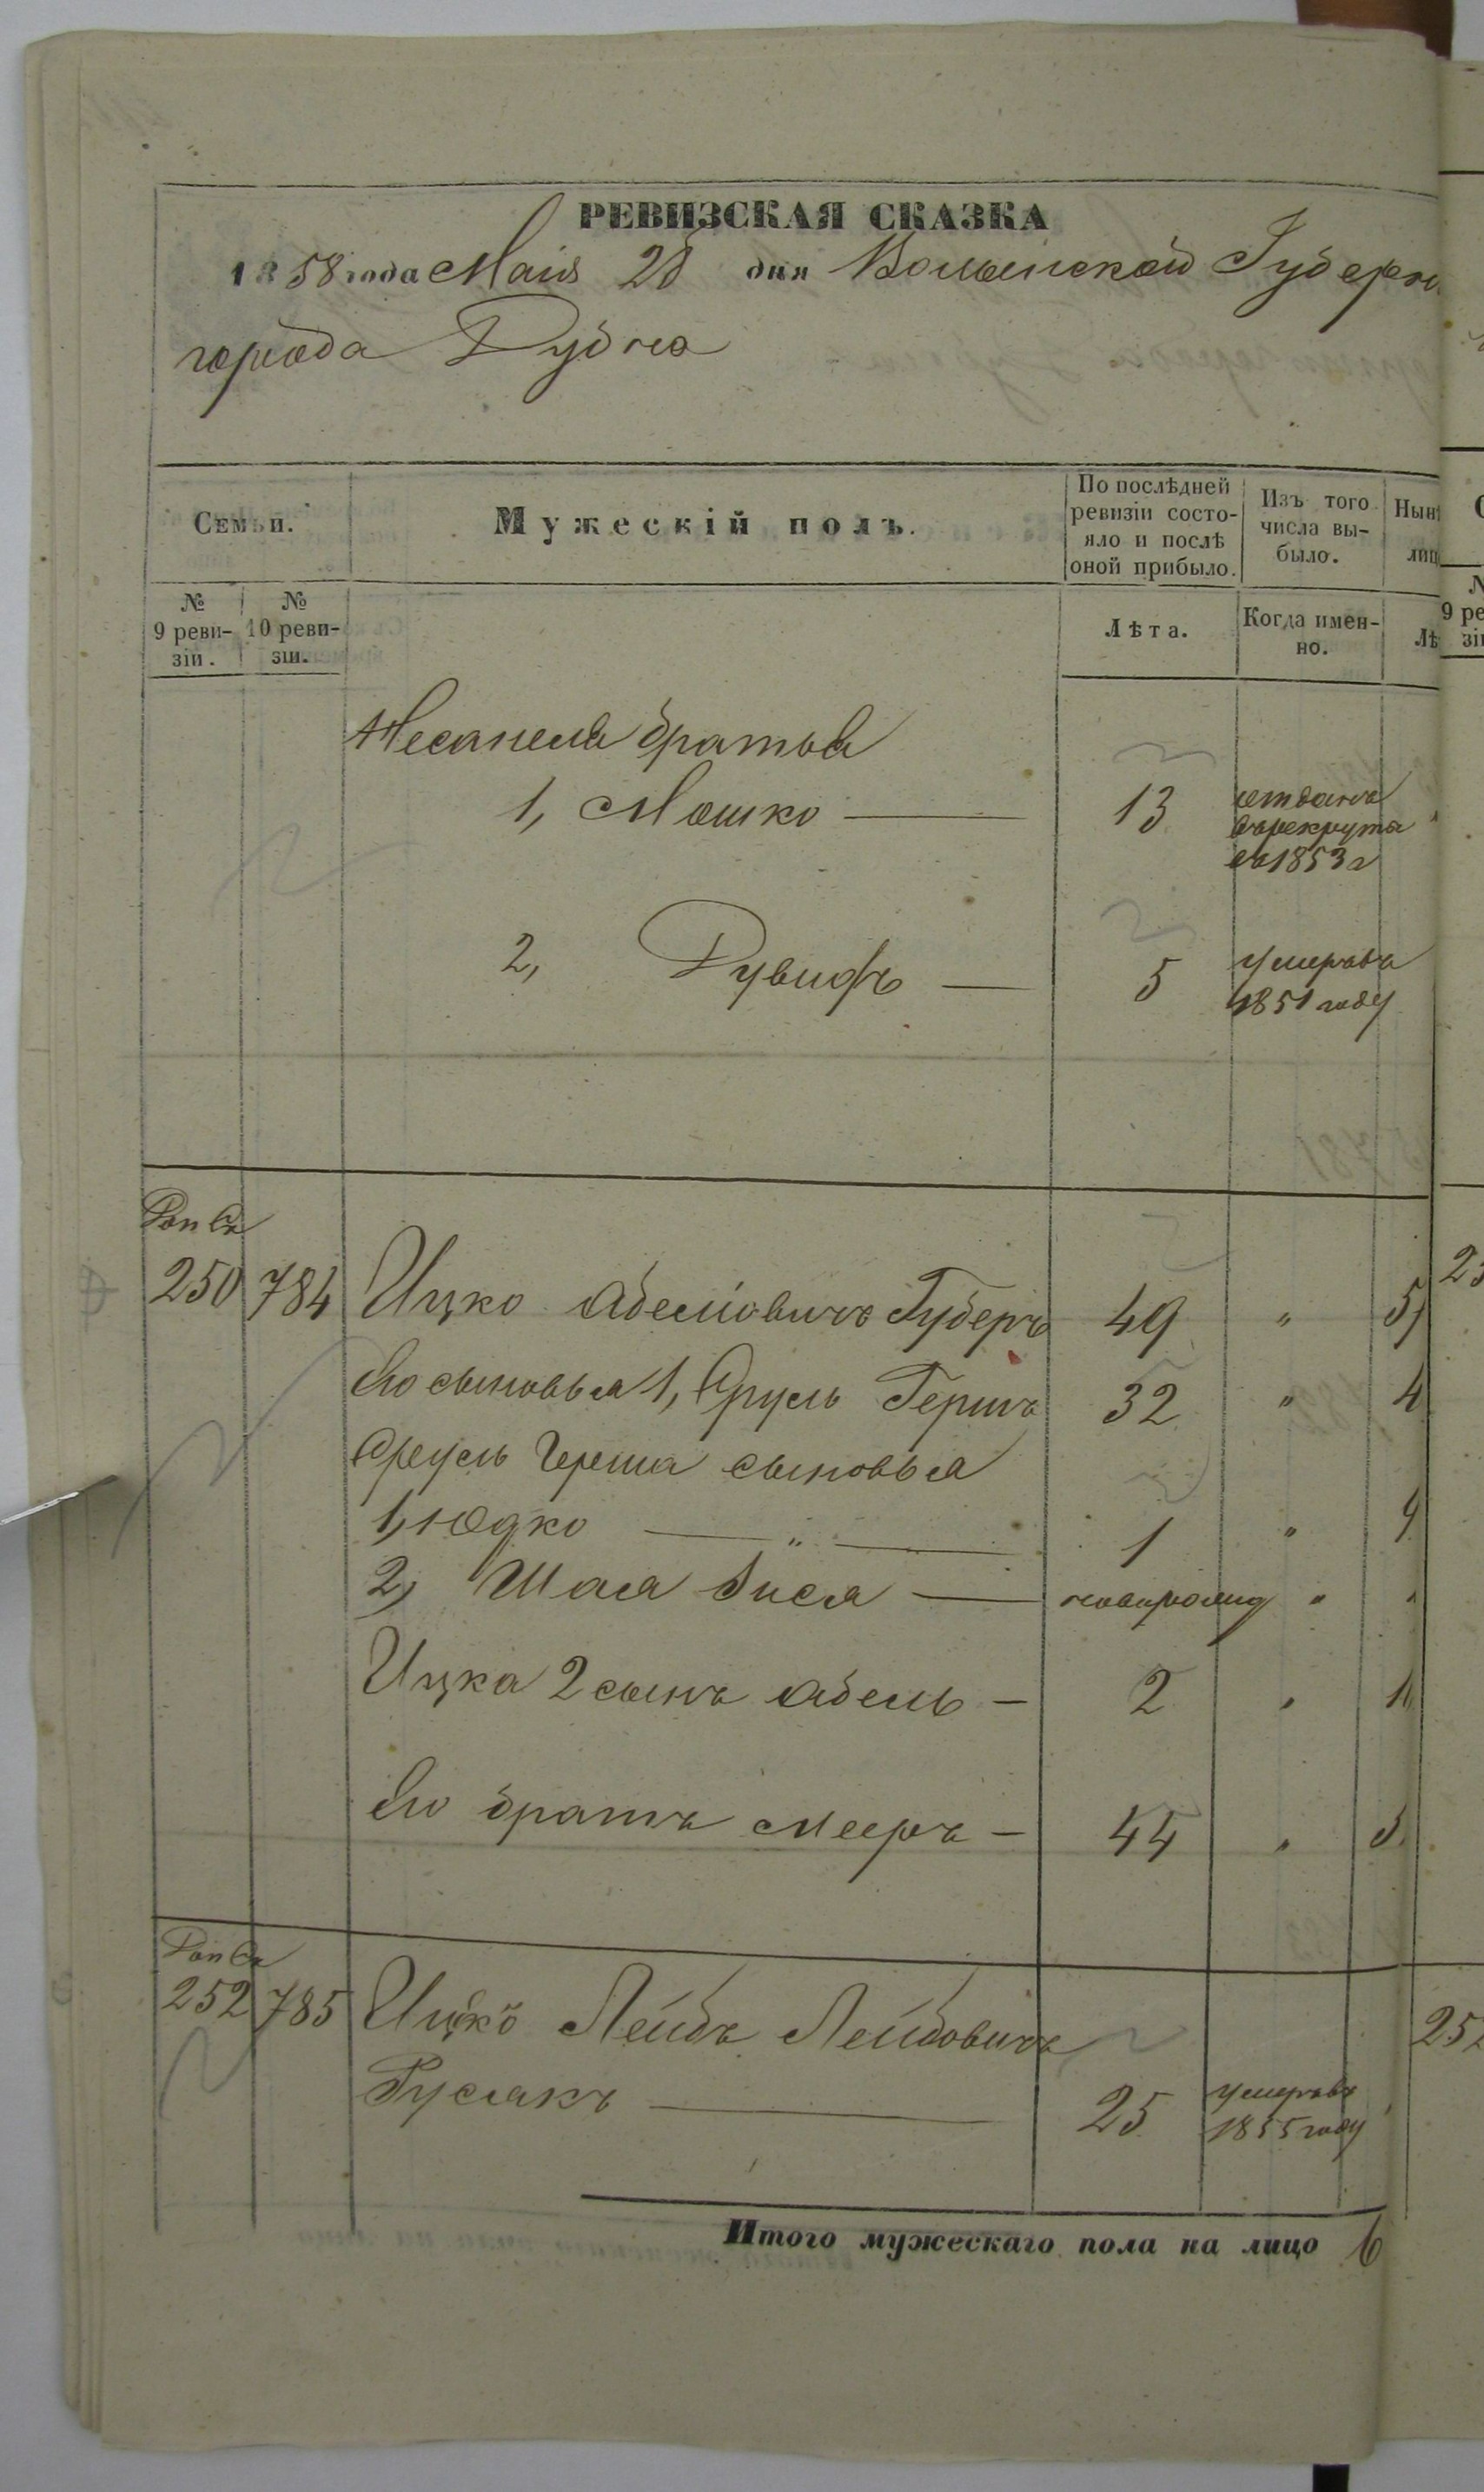 РЕВИЗСКАЯ СКАЗКА
1858 года Маия 28 дня Волынской Губерн
города Дубна
Семьи.
Мужескій полъ.
По послѣдней ревизіи состояло и послѣ оной прибыло.
Изъ того числа выбыло.
Нын
лиц
№ 9 ревизіи.
№ 10 ревизіи.
Лѣта.
Когда именно.
Лѣ
братья
1, Мошко 13 отданъ
в рекруты
въ 1853 г
2, Рувинъ 5 умеръ въ
1851 году
250 784 Ицко Абелiовичъ Губеръ 49 "
Его сыновья 1, Сруль Гершъ 32 " 4
Сруль Герша сыновья
1, Юдко — " — 1 "
2, Шая новорожд "
Ицка 2 сынъ Абель — 2 " 1
Его братъ Мееръ — 44 " 5
252 785 Ицко Лейбъ Лейбовичъ
Русакъ 25 умеръ въ
1855 году
Итого мужескаго пола на лицо 6